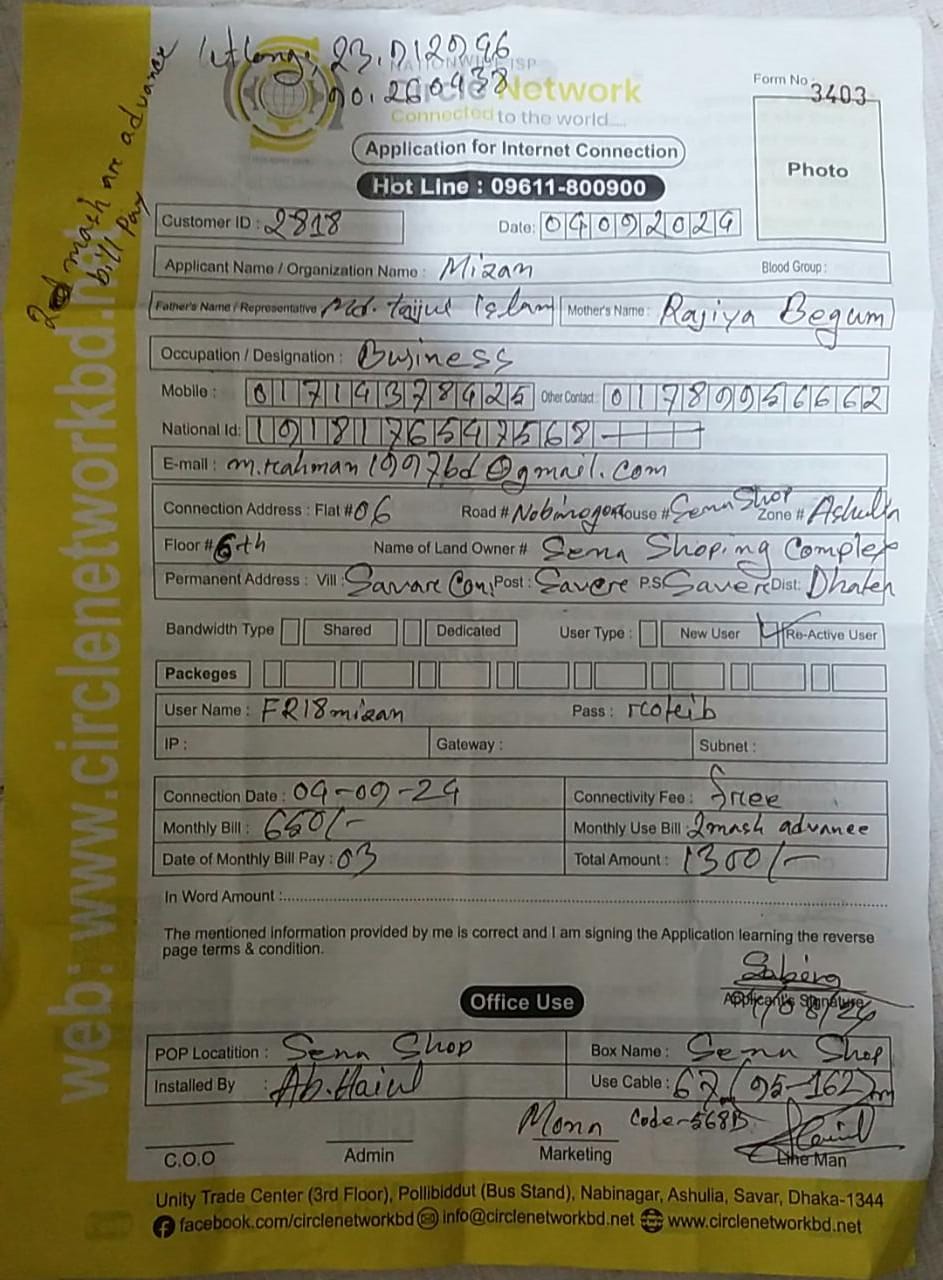 2 mash are advance
bill pay
NATIONWIDE ISP
Circle Network
Connected to the world....
Form No : 3403
Photo
Application for Internet Connection
Hot Line : 09611-800900
Customer ID : 2818 Date: 04092024
Applicant Name / Organization Name : Mizan Blood Group :
Father's Name / Representative Md. taijul Islam Mother's Name : Rajiya Begum
Occupation / Designation : Business
Mobile : 01714378425 Other Contact : 01789956662
National Id:
E-mail :
Connection Address : Flat # 06 Road # House # Sena Shop Zone # Ashulia
Floor # 6th Name of Land Owner # Sena Shoping Complex
Permanent Address : Vill : Savar Post : Savere P.S Savere Dist: Dhaka
Bandwidth Type Shared Dedicated User Type : New User Re-Active User
Packeges
User Name : FR18mizan Pass :
IP : Gateway : Subnet :
Connection Date : 04-09-24 Connectivity Fee : free
Monthly Bill : 650/- Monthly Use Bill : 2mash advance
Date of Monthly Bill Pay : 03 Total Amount : 1300/-
In Word Amount :
The mentioned information provided by me is correct and I am signing the Application learning the reverse
page terms & condition.
Applicant's Signature
Office Use
POP Locatition : Sena Shop Box Name : Sena Shop
Installed By : Use Cable : 67 (95-162)m
Code-568B
C.O.O Admin Marketing Line Man
Unity Trade Center (3rd Floor), Pollibiddut (Bus Stand), Nabinagar, Ashulia, Savar, Dhaka-1344
facebook.com/circlenetworkbd info@circlenetworkbd.net www.circlenetworkbd.net
web: www.circlenetworkbd.net